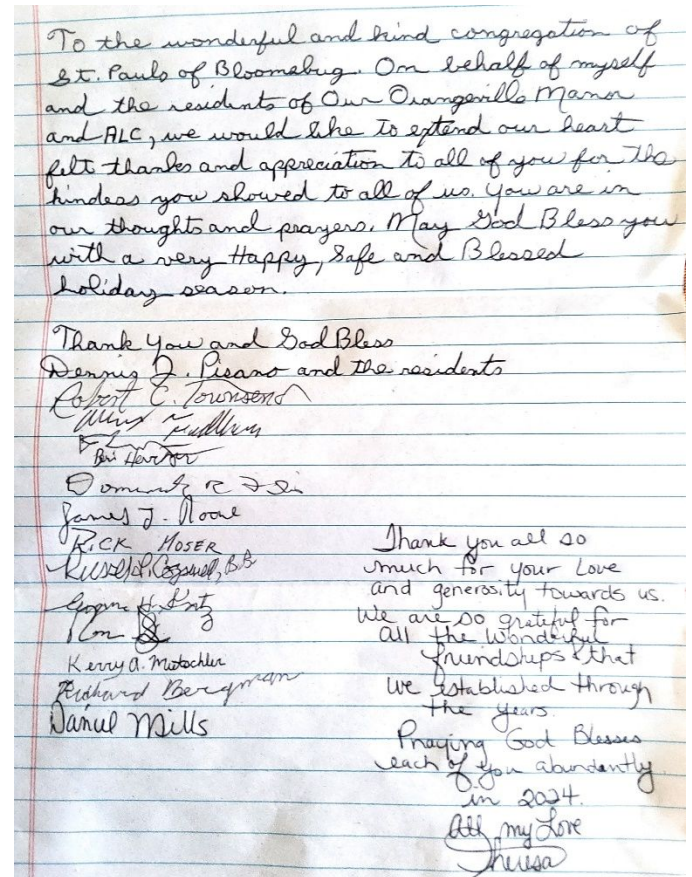 To the wonderful and kind congregation of
St. Pauls of Bloomsbug. On behalf of myself
and the residents of Our Orangeville Manor
and ALC, we would like to extend our heart
felt thanks and appreciation to all of you for the
kindess you showed to all of us. You are in
our thoughts and prayers. May God Bless you
with a very Happy, Safe and Blessed
holiday season.
Thank You and God Bless
Dennis J. Pisano and the residents
Robert C. Townsend
Ben
James J.
RICK MOSER
Russell
H.
Ron
Kerry A. Motschler
Richard Bergman
Daniel Mills
Thank you all so
much for your Love
and generosity towards us.
We are so grateful for
all the wonderful
friendships that
we established through
the years.
Praying God Blesses
each of you abundantly
in 2024.
All my Love
Theresa